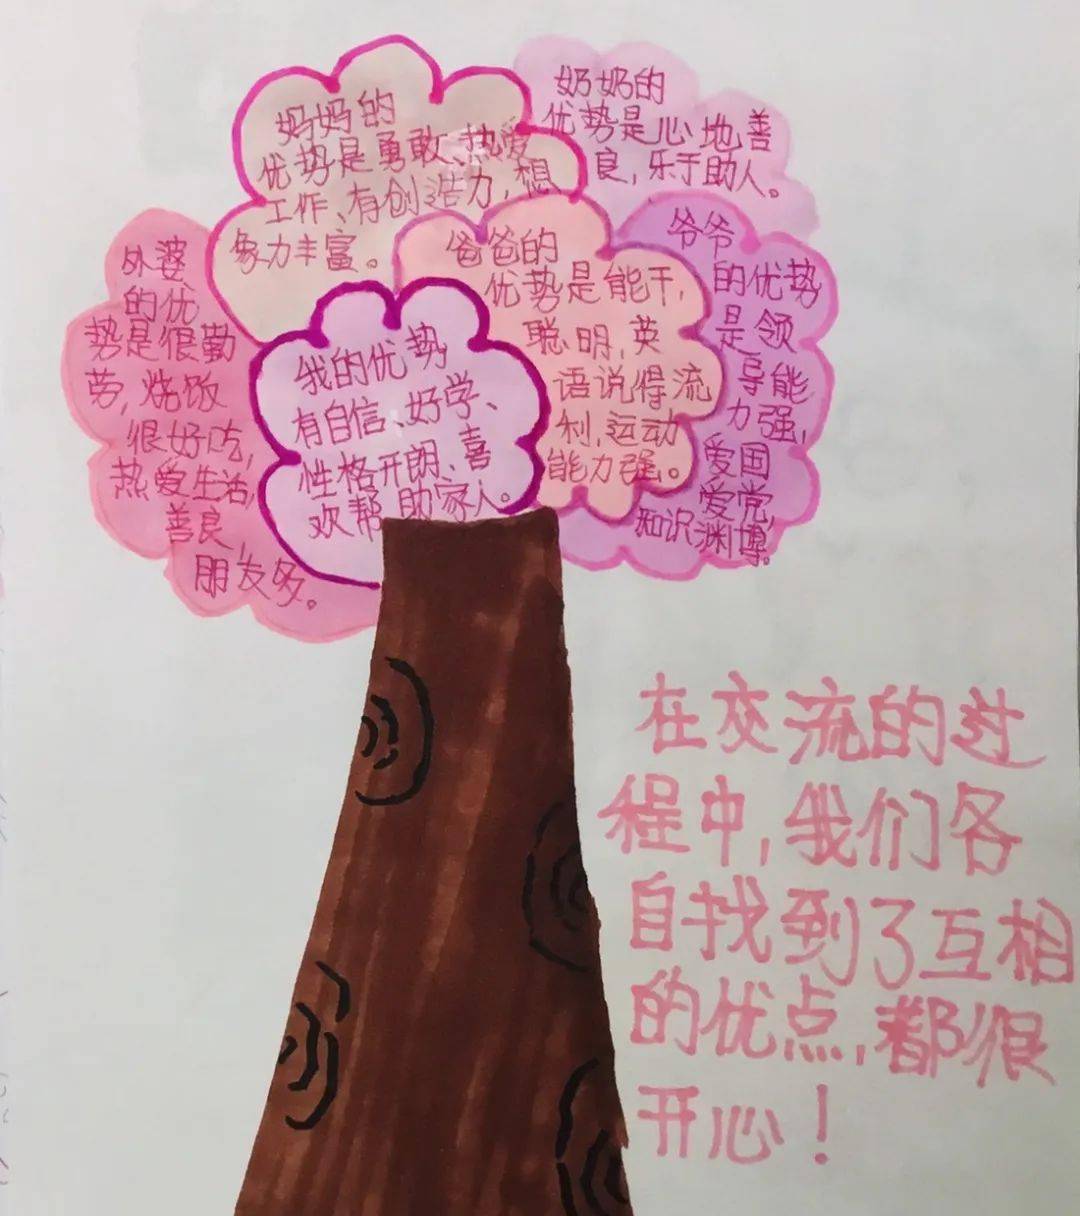 妈妈的
优势是勇敢、热爱
工作、有创造力,想
象力丰富。
奶奶的
优势是心地善
良,乐于助人。
外婆
的优
势是很勤
劳,烧饭
很好吃,
热爱生活,
善良,
朋友多。
我的优势
有自信、好学、
性格开朗、喜
欢帮助家人。
爸爸的
优势是能干,
聪明,英
语说得流
利,运动
能力强。
爷爷
的优势
是领
导能
力强,
爱国
爱党,
知识渊博。
在交流的过
程中,我们各
自找到了互相
的优点,都很
开心!